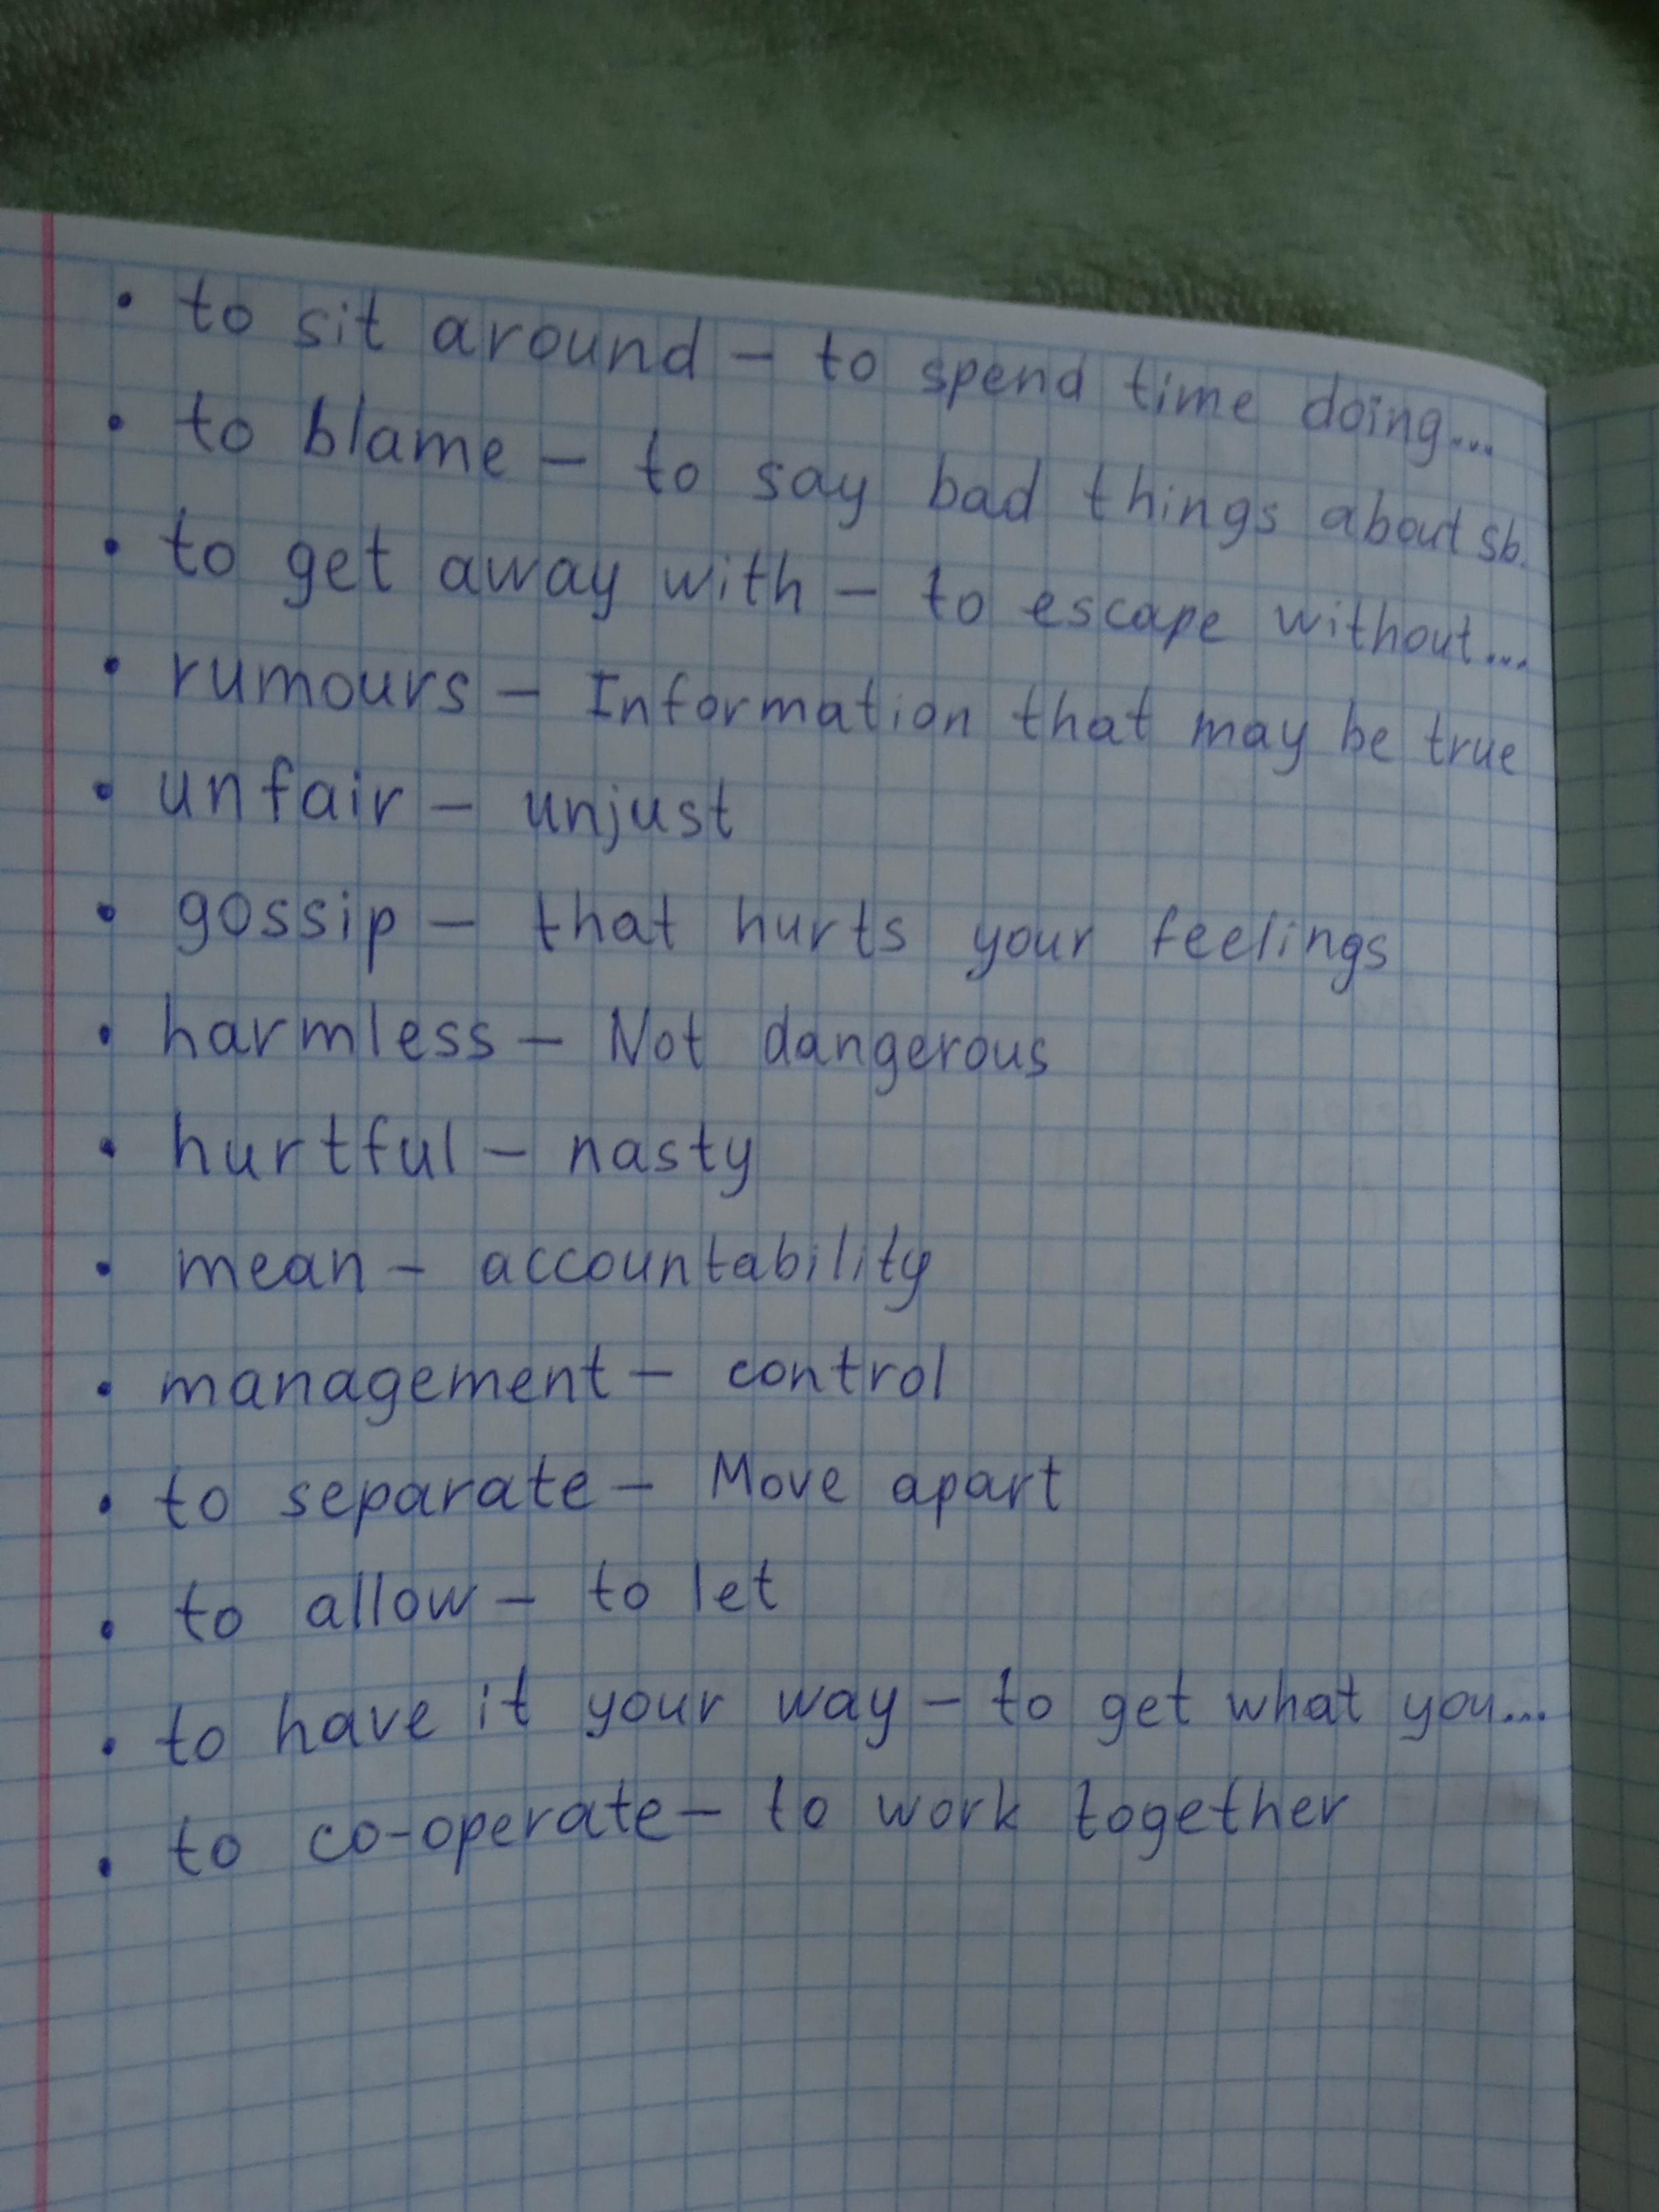 • to sit around – to spend time doing...
• to blame – to say bad things about sb.
• to get away with – to escape without...
• rumours – Information that may be true
• unfair – unjust
• gossip – that hurts your feelings
• harmless – Not dangerous
• hurtful – nasty
• mean – accountability
• management – control
• to separate – Move apart
• to allow – to let
• to have it your way – to get what you...
• to co-operate – to work together